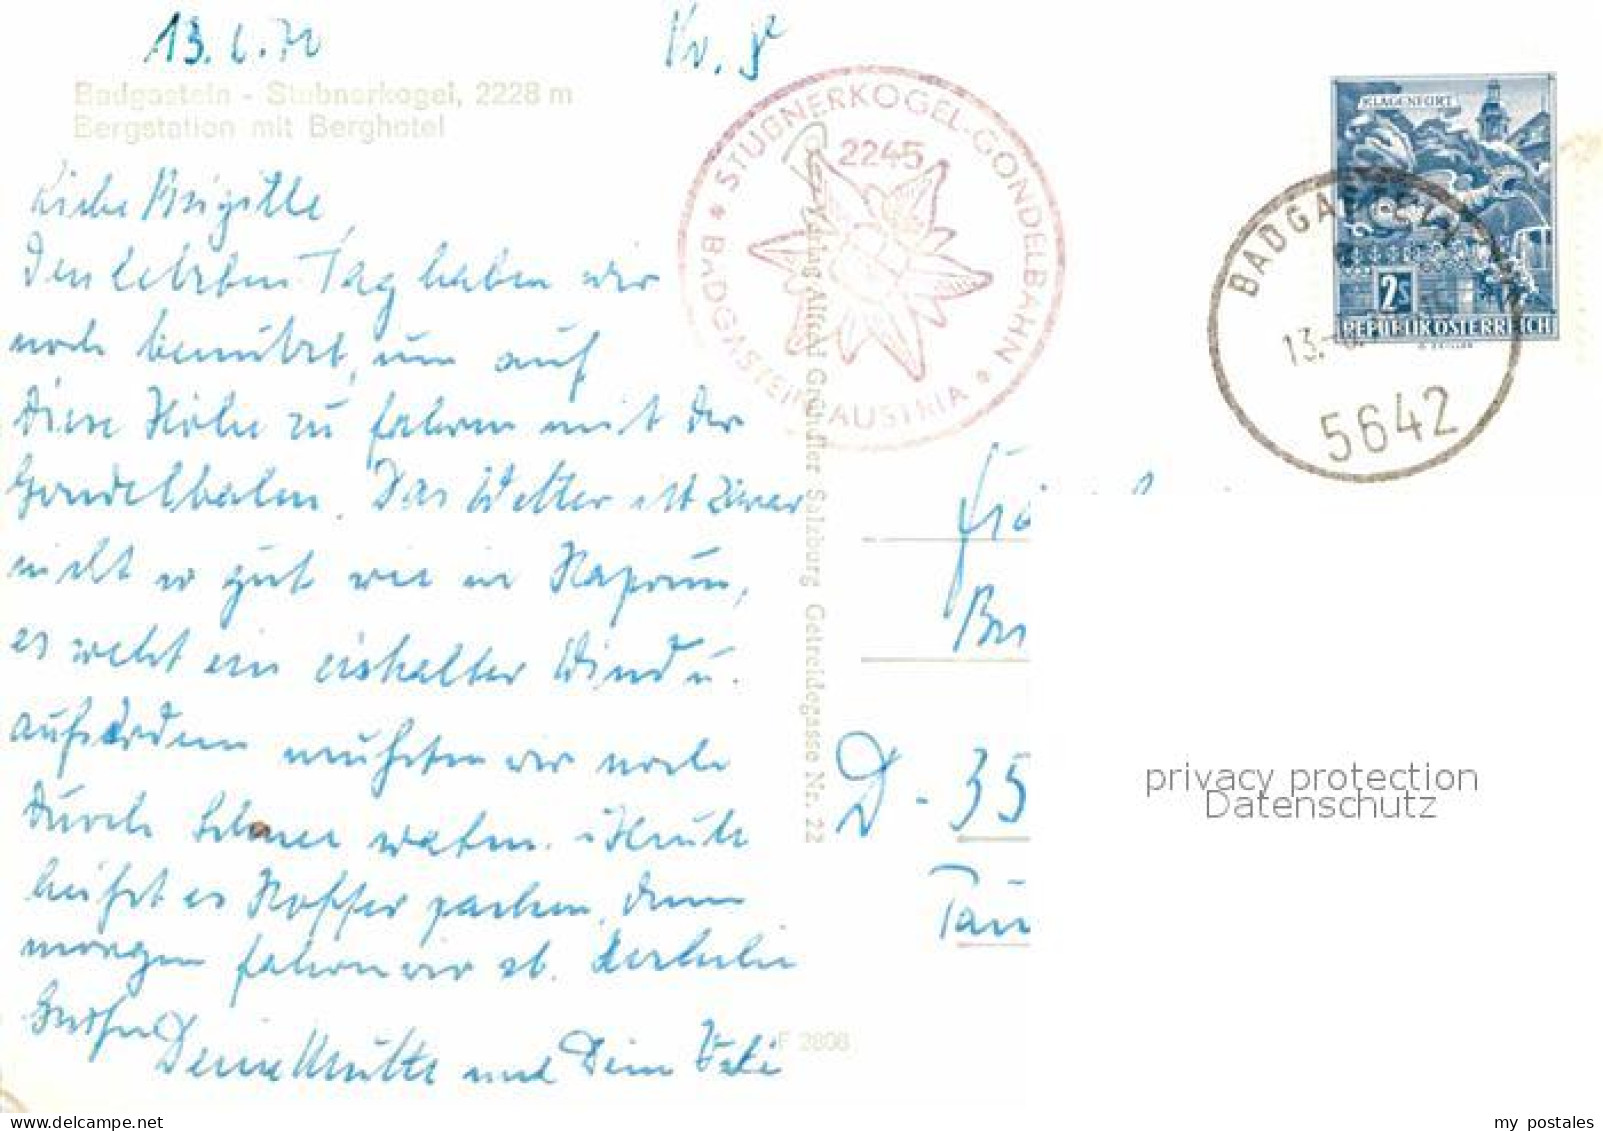 13.6.70
Nr. 8
Badgastein - Stubnerkogel, 2228 m
Bergstation mit Berghotel
Liebe Brigitte,
Den letzten Tag haben wir
noch benutzt, um auf
diese Höhe zu fahren mit der
Gondelbahn. Das Wetter ist zwar
nicht so gut wie in Kaprun,
es weht ein eiskalter Wind u.
außerdem mußten wir noch
durch Schnee waten. Heute
heißt es Koffer packen, denn
morgen fahren wir ab. Herzliche
Grüße
Deine Mutti und Dein Vati
STUBNERKOGEL-GONDELBAHN
2245
BADGASTEIN AUSTRIA
Verlag Alfred Gründler Salzburg Getreidegasse Nr. 22
F 2808
KLAGENFURT
2S
REPUBLIK ÖSTERREICH
BADGASTEIN
13.-6.
5642
D-35
privacy protection
Datenschutz
my postales